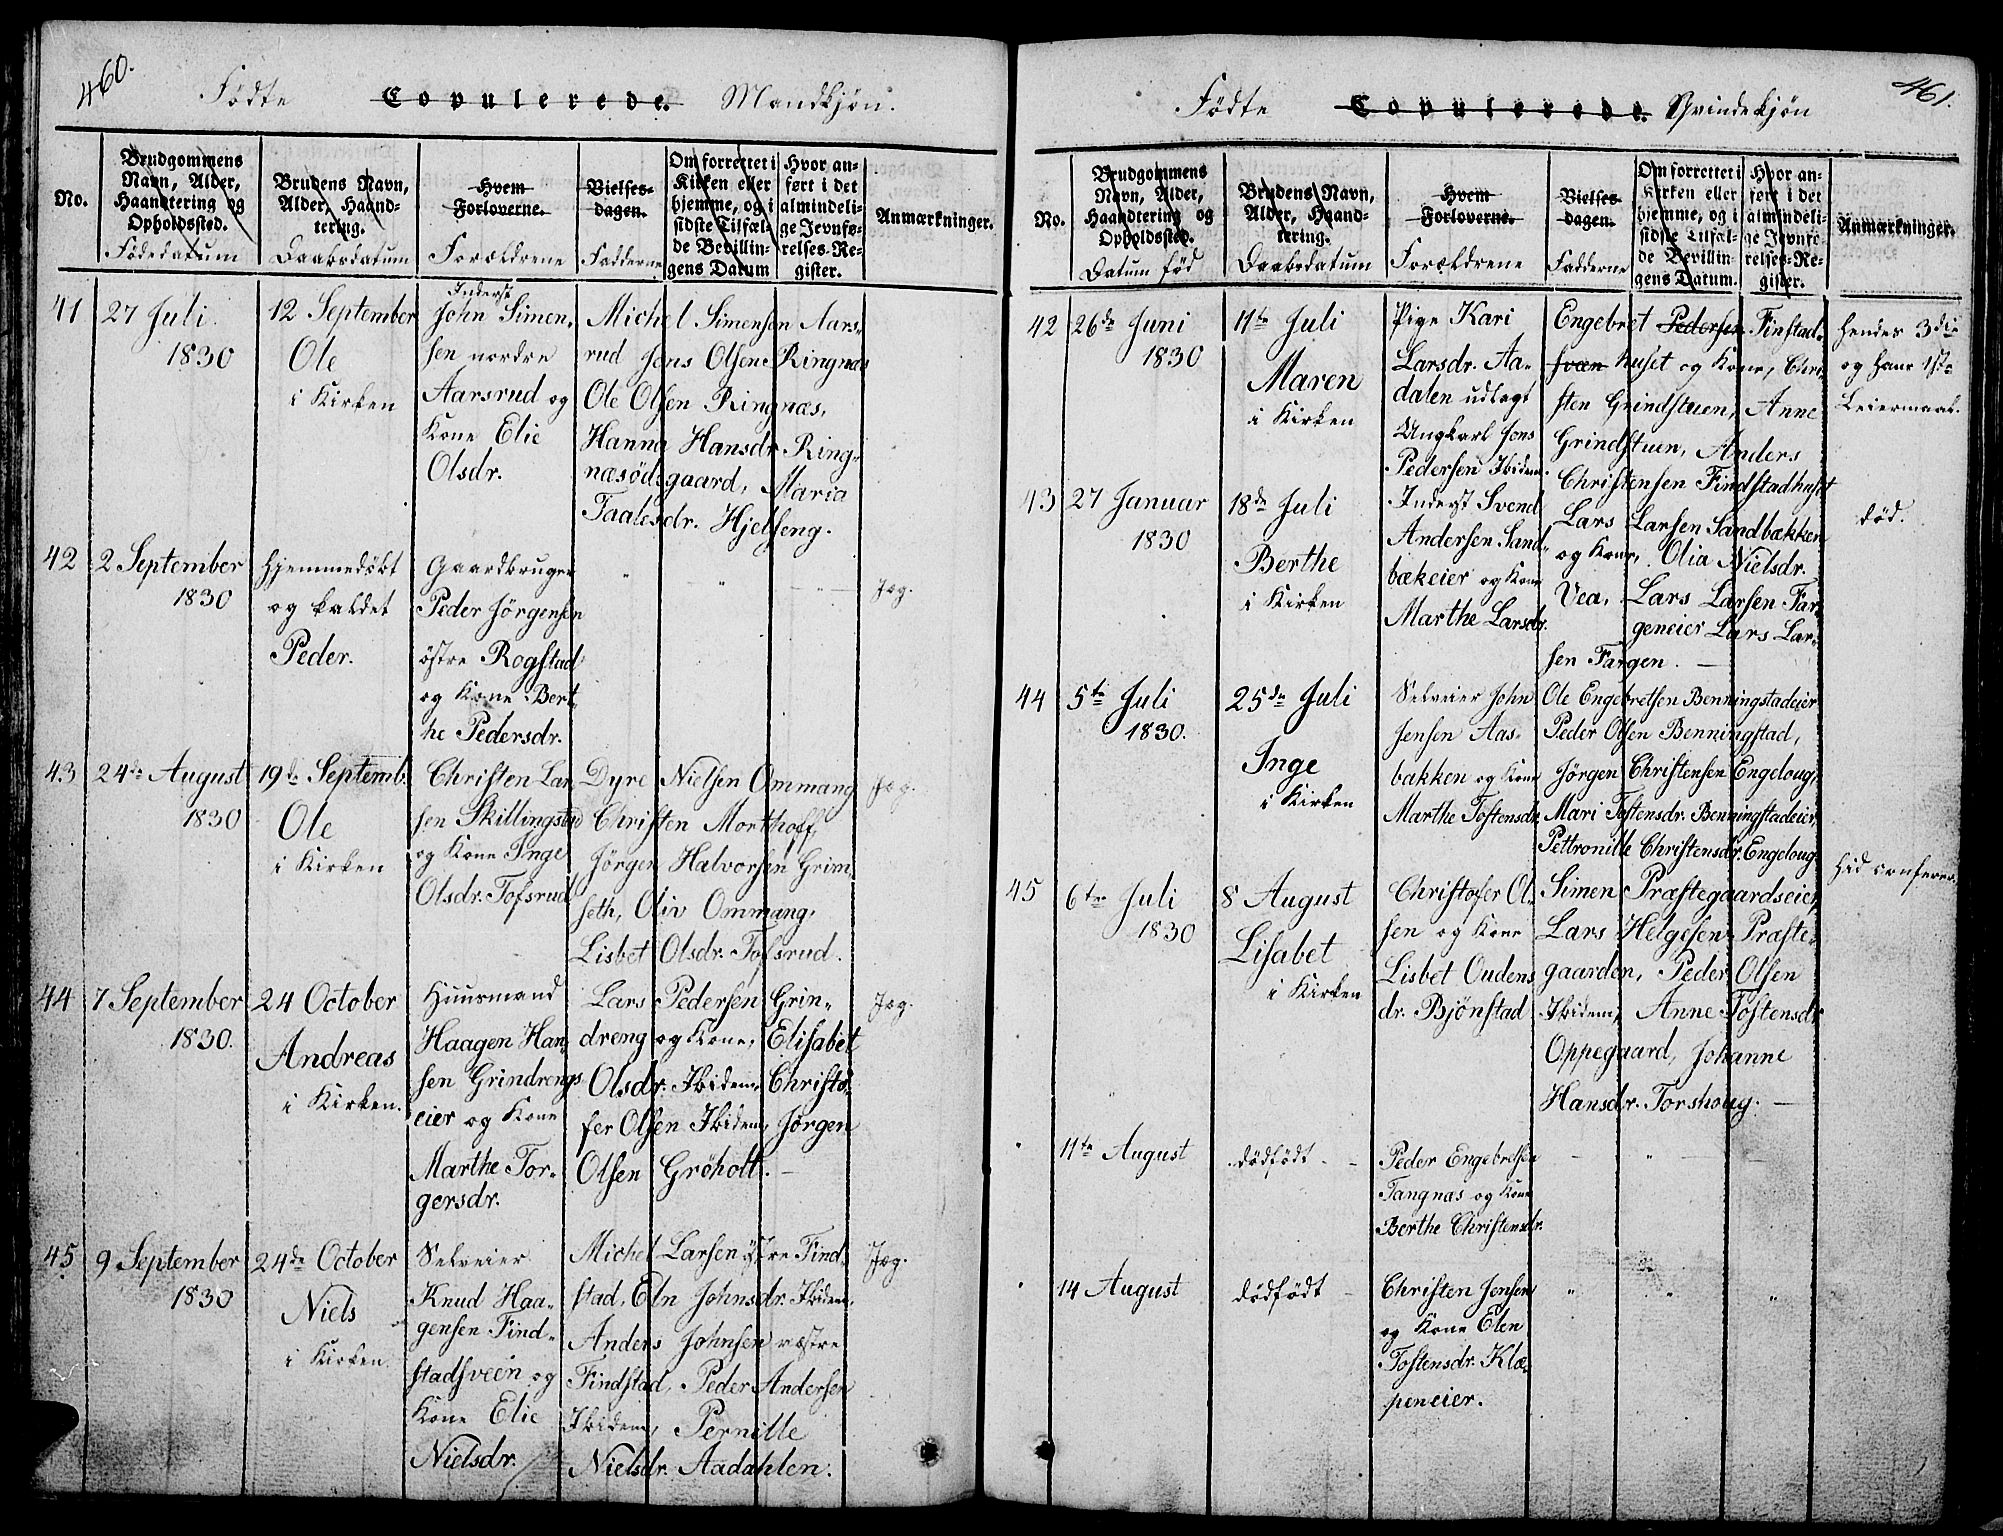 460.
Fødte Copulerede. Mandkjøn.
No.
Brudgommens
Navn, Alder,
Haandtering og
Opholdssted.
Fødedatum
Brudens Navn,
Alder, Haand-
tering.
Daabsdatum
Hvem
Forloverne.
Forældrene
Vielses-
dagen.
Fadderne
Om forrettet i
Kirken eller
hjemme, og i
sidste Tilfæl-
de Bevillin-
gens Datum
Hvor an-
ført i det
almindeli-
ge Jevnfø-
relses-Re-
gister.
Anmærkninger.
41
27 Juli
1830
12 September
Ole
i Kirken
Inderst
John Simen-
sen nordre
Aarsrud og
Kone Elie
Olsdr.
Michel Simensen Aars-
rud Jens Olsen Ringnæs
Ole Olsen Ringnæs,
Hanna Hansdr. Ring-
næsødegaard, Maria
Taalesdr. Hjelseng.
42
2 September
1830
Hjemmedøbt
og kaldet
Peder.
Gaardbruger
Peder Jørgensen
østre Rogstad
og Kone Bert-
he Pedersdr.
" " - " -
Jeg.
43
24de August
1830
19de Septemb.
Ole
i Kirken
Christen Lar-
sen Skillingstad
og Kone Inge
Olsdr. Tofsrud
Dyre Nielsen Ommang
Christen Morthoff,
Jørgen Halvorsen Grim-
seth, Oliv Ommang,
Lisbet Olsdr. Tofsrud.
Jeg.
44
7 September
1830.
24 October
Andreas
i Kirken.
Huusmand
Haagen Han-
sen Grindrengs
eier og Kone
Marthe Tor-
gersdr.
Lars Pedersen Grin-
dreng og Kone, Elisabet
Olsdr. Ibidem, Christo-
fer Olsen Ibidem, Jørgen
Olsen Grøholt. -
Jeg.
45
9 September
1830
24de October
Niels
i Kirken.
Selveier
Knud Haa-
gensen Find-
stadsveen og
Kone Elie
Nielsdr.
Michel Larsen østre Find-
stad, Eln Johnsdr. Ibidem,
Anders Johnsen vestre
Findstad, Peder Andersen
Ibidem, Pernille
Nielsdr. Aadahlen.
Jeg.
461.
Fødte Copulerede. Qvindekjøn
No.
Brudgommens
Navn, Alder,
Haandtering og
Opholdssted.
Datum fød
Brudens Navn,
Alder, Haand-
tering.
Daabsdatum
Hvem
Forloverne.
Forældrene
Vielses-
dagen.
Fadderne
Om forrettet i
Kirken eller
hjemme, og i
sidste Tilfæl-
de Bevillin-
gens Datum.
Hvor an-
ført i det
almindeli-
ge Jevnfø-
relses-Re-
gister.
Anmærkninger.
42
26de Juni
1830
11te Juli
Maren
i Kirken
Pige Kari
Larsdr. Aa-
dalen udlagt
Ungkarl Jens
Pedersen Ibidem.
Engebret Pedersen Finstad-
svæn huset og Kone, Chri-
sten Grindstuen, Anne
Grindstuen, Anders
Christensen Findstadhuset
Hendes 3die
og Hans 1ste
Leiermaal.
43
27 Januar
1830
18de Juli
Berthe
i Kirken
Inderst Svend
Andersen Sand-
bækeier og Kone
Marthe Larsdr.
Lars Larsen Sandbækken
og Kone, Olia Nielsdr.
Vea, Lars Larsen Far-
geneier Lars Lar-
sen Fargen. -
død.
44
5te Juli
1830.
25de Juli
Inge
i Kirken
Selveier John
Jensen Aas-
bakken og Kone
Marthe Tostensdr.
Ole Engebretsen Benningstadeier
Peder Olsen Benningstad,
Jørgen Christensen Engeloug,
Mari Tostensdr. Benningstadeier,
Pettronille Christensdr. Engeloug
45
6te Juli
1830
8 August
Lisabet
i Kirken
Christofer Ol-
sen og Kone
Lisbet Oudens
dr. Bjønstad
Simen Præstegaardseier,
Lars Helgesen Præste-
gaarden, Peder Olsen
Ibidem, Anne Tostensdr.
Oppegaard, Johanne
Hansdr. Torshoug. -
Hid confereer.
"
11te August
dødfødt - -
Peder Engebretsen
Tangnæs og Kone
Berthe Christensdr.
- " - -
"
14 August
dødfødt -
Christen Jensen
og Kone Elen
Tostensdr. Klæ-
peneier.
" " "